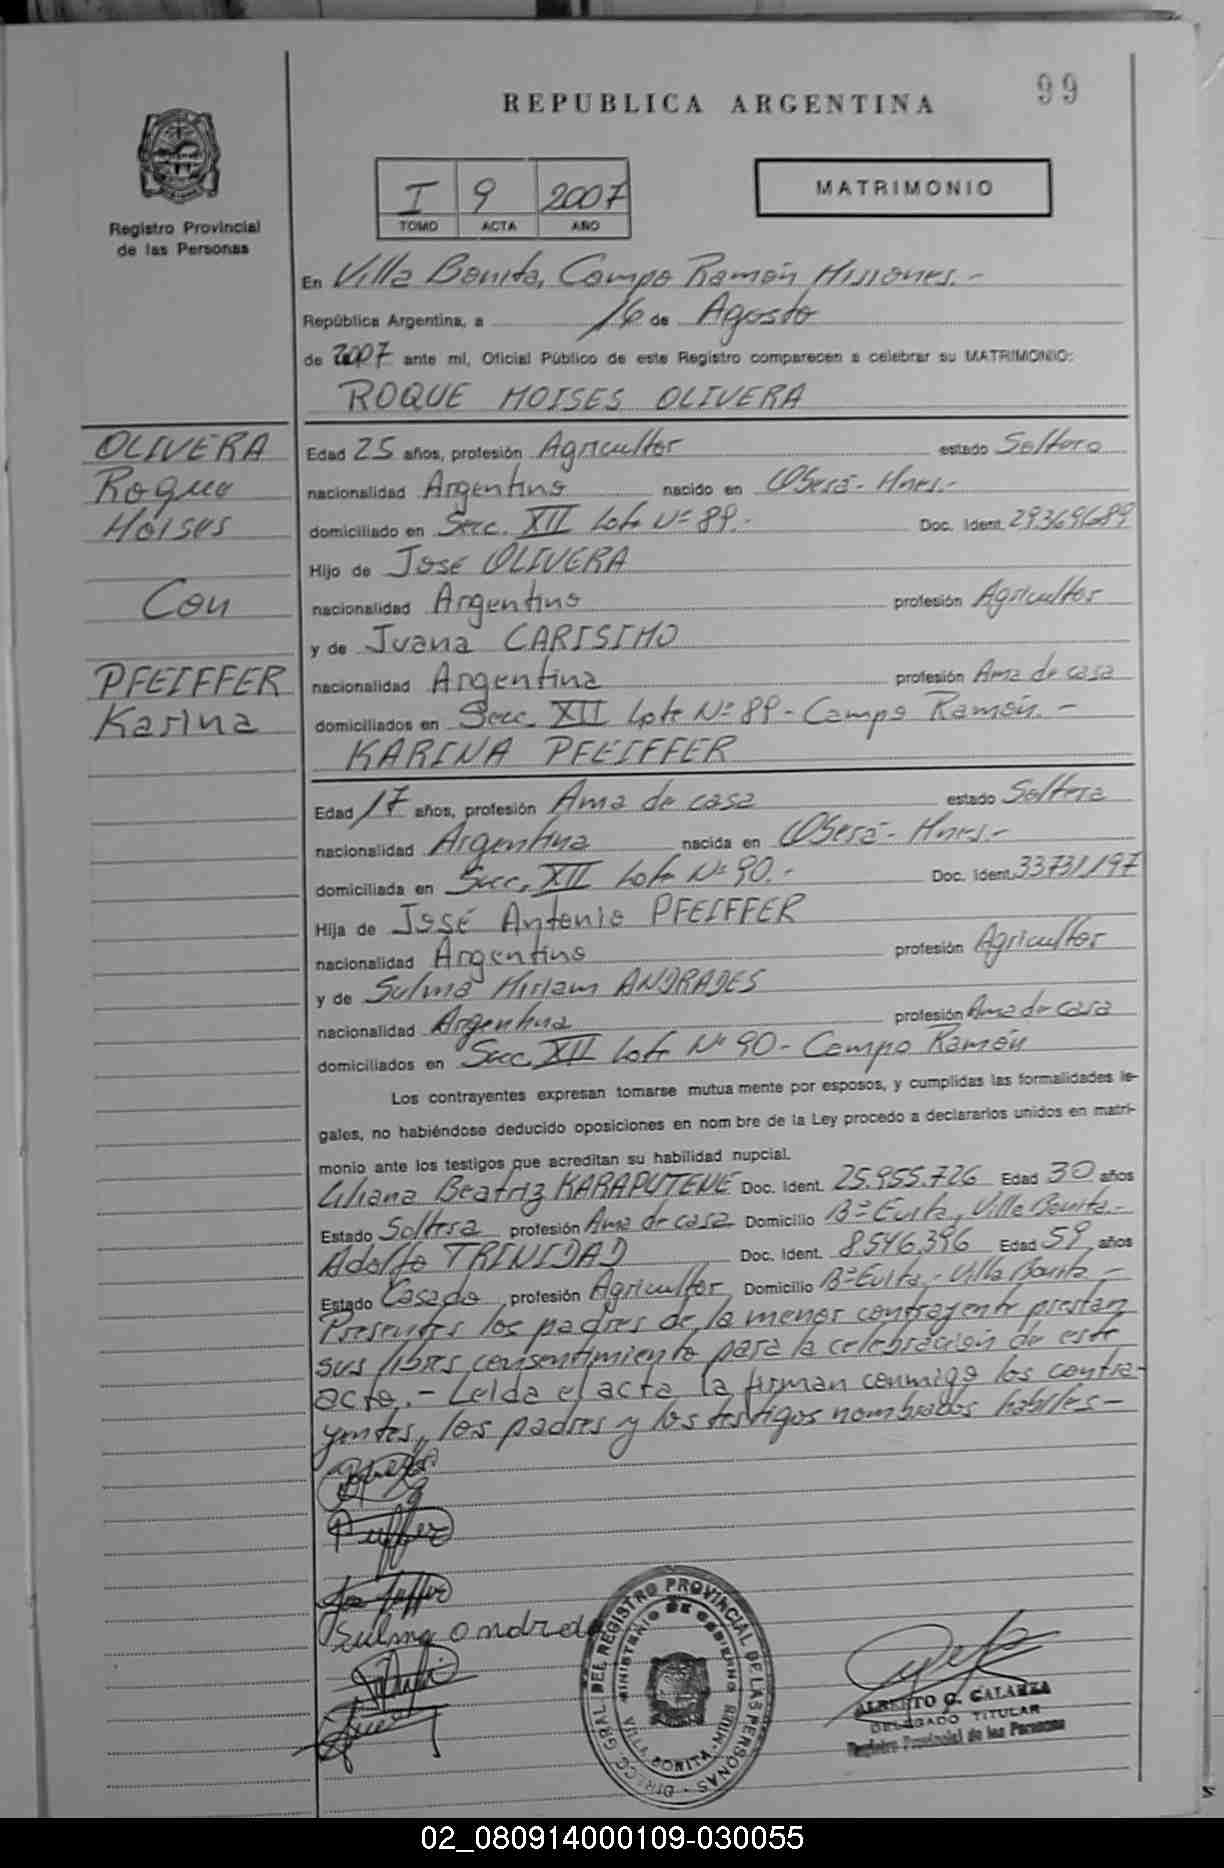 99
REPUBLICA ARGENTINA
I 9 2007
TOMO ACTA AÑO
MATRIMONIO
Registro Provincial
de las Personas
En Villa Bonita, Campo Ramón Misiones.-
República Argentina, a 16 de Agosto
de 2007 ante mí, Oficial Público de este Registro comparecen a celebrar su MATRIMONIO:
ROQUE MOISES OLIVERA
OLIVERA
Roque
Moises
Con
PFEIFFER
Karina
Edad 25 años, profesión Agricultor estado Soltero
nacionalidad Argentino nacido en Oberá - Mnes.-
domiciliado en Secc. XII Lote Nº 89.- Doc. Ident. 29.369.689
Hijo de José OLIVERA
nacionalidad Argentino profesión Agricultor
y de Juana CARISIMO
nacionalidad Argentina profesión Ama de casa
domiciliados en Secc. XII Lote Nº 89 - Campo Ramón.-
KARINA PFEIFFER
Edad 17 años, profesión Ama de casa estado Soltera
nacionalidad Argentina nacida en Oberá - Mnes.-
domiciliada en Secc. XII Lote Nº 90.- Doc. Ident. 33731197
Hija de José Antonio PFEIFFER
nacionalidad Argentino profesión Agricultor
y de Sulma Miriam ANDRADES
nacionalidad Argentina profesión Ama de casa
domiciliados en Secc. XII Lote Nº 90 - Campo Ramón
Los contrayentes expresan tomarse mutua mente por esposos, y cumplidas las formalidades le-
gales, no habiéndose deducido oposiciones en nom bre de la Ley procedo a declararlos unidos en matri-
monio ante los testigos que acreditan su habilidad nupcial.
Liliana Beatriz KARAPUTENE Doc. Ident. 25.955.726 Edad 30 años
Estado Soltera profesión Ama de casa Domicilio Bº Evita, Villa Bonita.-
Adolfo TRINIDAD Doc. Ident. 8.546.396 Edad 59 años
Estado Casado profesión Agricultor Domicilio Bº Evita, - Villa Bonita.-
Presentes los padres de la menor contrayente prestan
sus libres consentimiento para la celebración de este
acto.- Leída el acta, la firman conmigo los contra-
yentes, los padres y los testigos nombrados habiles-
Pfeiffer
Sulma andrade
DIRECC. GRAL. DEL REGISTRO PROVINCIAL DE LAS PERSONAS
MINISTERIO DE GOBIERNO
VILLA BONITA
ALBERTO O. GALARZA
DELEGADO TITULAR
Registro Provincial de las Personas
02_080914000109-030055